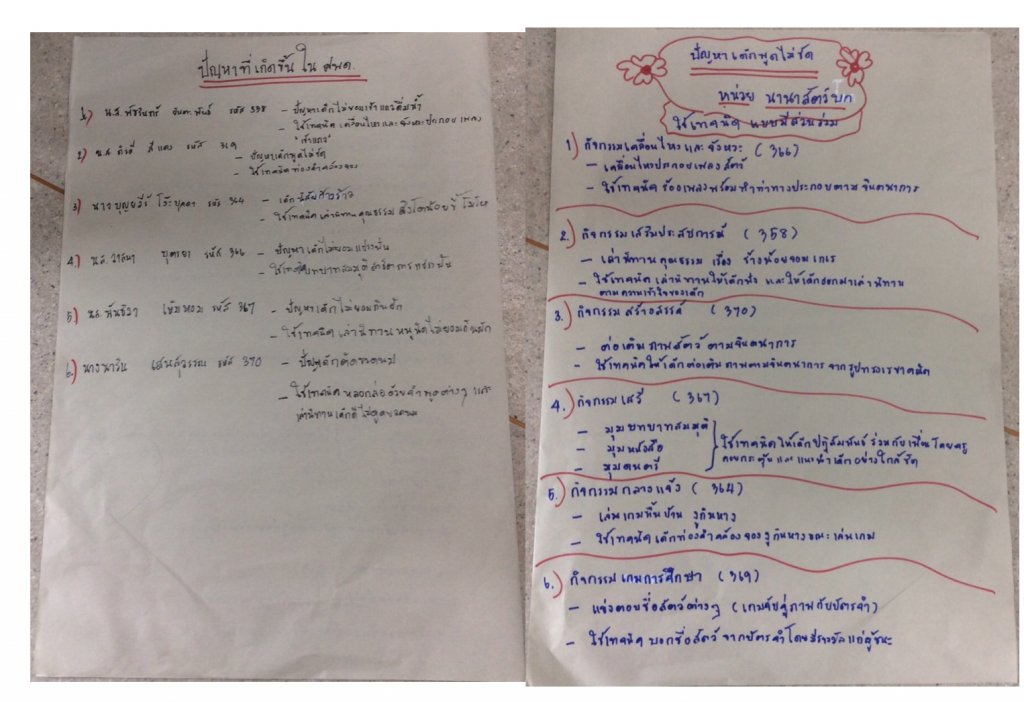 ปัญหาที่เกิดขึ้นใน ศพด.
1) น.ส. พัชรินทร์ จินดาพันธ์ รหัส 358 – ปัญหาเด็กไม่ชอบเข้าแถวดื่มน้ำ
– ใช้เทคนิค เคลื่อนไหวและจังหวะประกอบเพลง
"เข้าแถว"
2) น.ส. สีแดง รหัส 369
– ปัญหาเด็กพูดไม่ชัด
– ใช้เทคนิคท่องคำคล้องจอง
3) นาง บุญยวีร์ โว๊ะบุคดา รหัส 364 – เด็กมีนิสัยก้าวร้าว
– ใช้เทคนิค เล่านิทานคุณธรรม สิงโตน้อยขี้โมโห
4) น.ส. วาสนา บุตรยา รหัส 366 – ปัญหาเด็กไม่ยอมแบ่งปัน
– ใช้เทคนิคบทบาทสมมุติ
5) น.ส. พันธิวา เข็มหอม รหัส 367 – ปัญหาเด็กไม่ยอมกินผัก
– ใช้เทคนิค เล่านิทาน หนูนิดไม่ยอมกินผัก
6) นางนาริน เสนสุวรรณ รหัส 370 – ปัญหาเด็กติดขวดนม
– ใช้เทคนิค หลอกล่อด้วยคำพูดต่างๆ และ
เล่านิทานเด็กดีไม่ดูดขวดนม
ปัญหาเด็กพูดไม่ชัด
หน่วย นานาสัตว์บก
ใช้เทคนิค แบบมีส่วนร่วม
1) กิจกรรมเคลื่อนไหวและจังหวะ (366)
– เคลื่อนไหวประกอบเพลงสัตว์
– ใช้เทคนิค ร้องเพลงพร้อมทำท่าทางประกอบตามจินตนาการ
2.) กิจกรรมเสริมประสบการณ์ (358)
– เล่านิทานคุณธรรม เรื่อง ช้างน้อยจอมเกเร
– ใช้เทคนิค เล่านิทานให้เด็กฟัง และให้เด็กออกมาเล่านิทาน
ตามความเข้าใจของเด็ก
3.) กิจกรรมสร้างสรรค์ (370)
– ต่อเติมภาพสัตว์ตามจินตนาการ
– ใช้เทคนิคให้เด็กต่อเติมภาพตามจินตนาการจากรูปทรงเรขาคณิต
4.) กิจกรรมเสรี (367)
– มุมบทบาทสมมุติ
– มุมหนังสือ
– มุมดนตรี
ใช้เทคนิคให้เด็กปฏิสัมพันธ์ร่วมกับเพื่อนโดยครู
คอยกระตุ้นและแนะนำเด็กอย่างใกล้ชิด
5.) กิจกรรมกลางแจ้ง (364)
– เล่นเกมพื้นบ้าน งูกินหาง
– ใช้เทคนิคเด็กท่องคำคล้องจองงูกินหางขณะเล่นเกม
6.) กิจกรรมเกมการศึกษา (369)
– แข่งตอบชื่อสัตว์ต่างๆ (เกมจับคู่ภาพกับบัตรคำ)
– ใช้เทคนิค บอกชื่อสัตว์จากบัตรคำโดยมีรางวัลแก่ผู้ชนะ